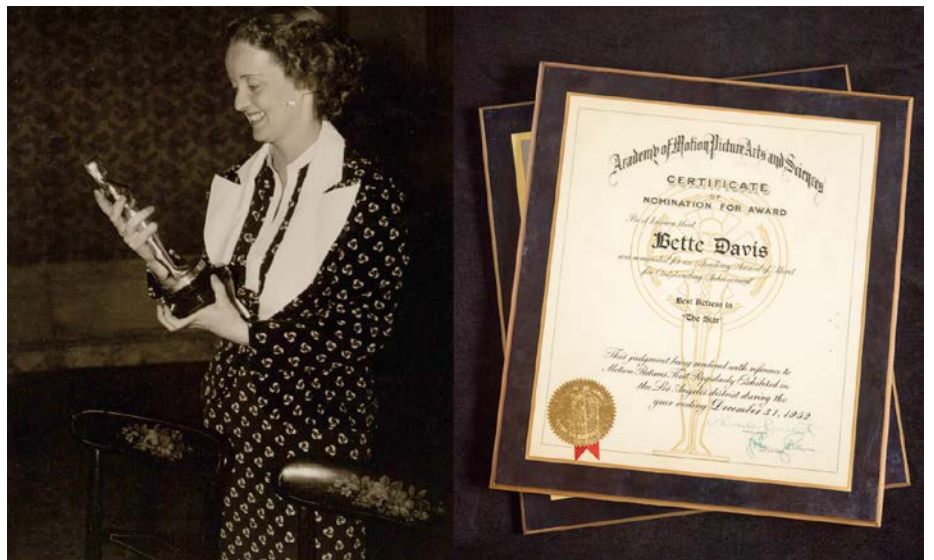 Academy of Motion Picture Arts and Sciences
CERTIFICATE
OF
NOMINATION FOR AWARD
Be it known that
Bette Davis
was nominated for an Academy Award of Merit
for Outstanding Achievement
Best Actress in
"The Star"
This judgment being rendered with reference to
Motion Pictures First Regularly Exhibited in
the Los Angeles district during the
year ending December 31, 1952